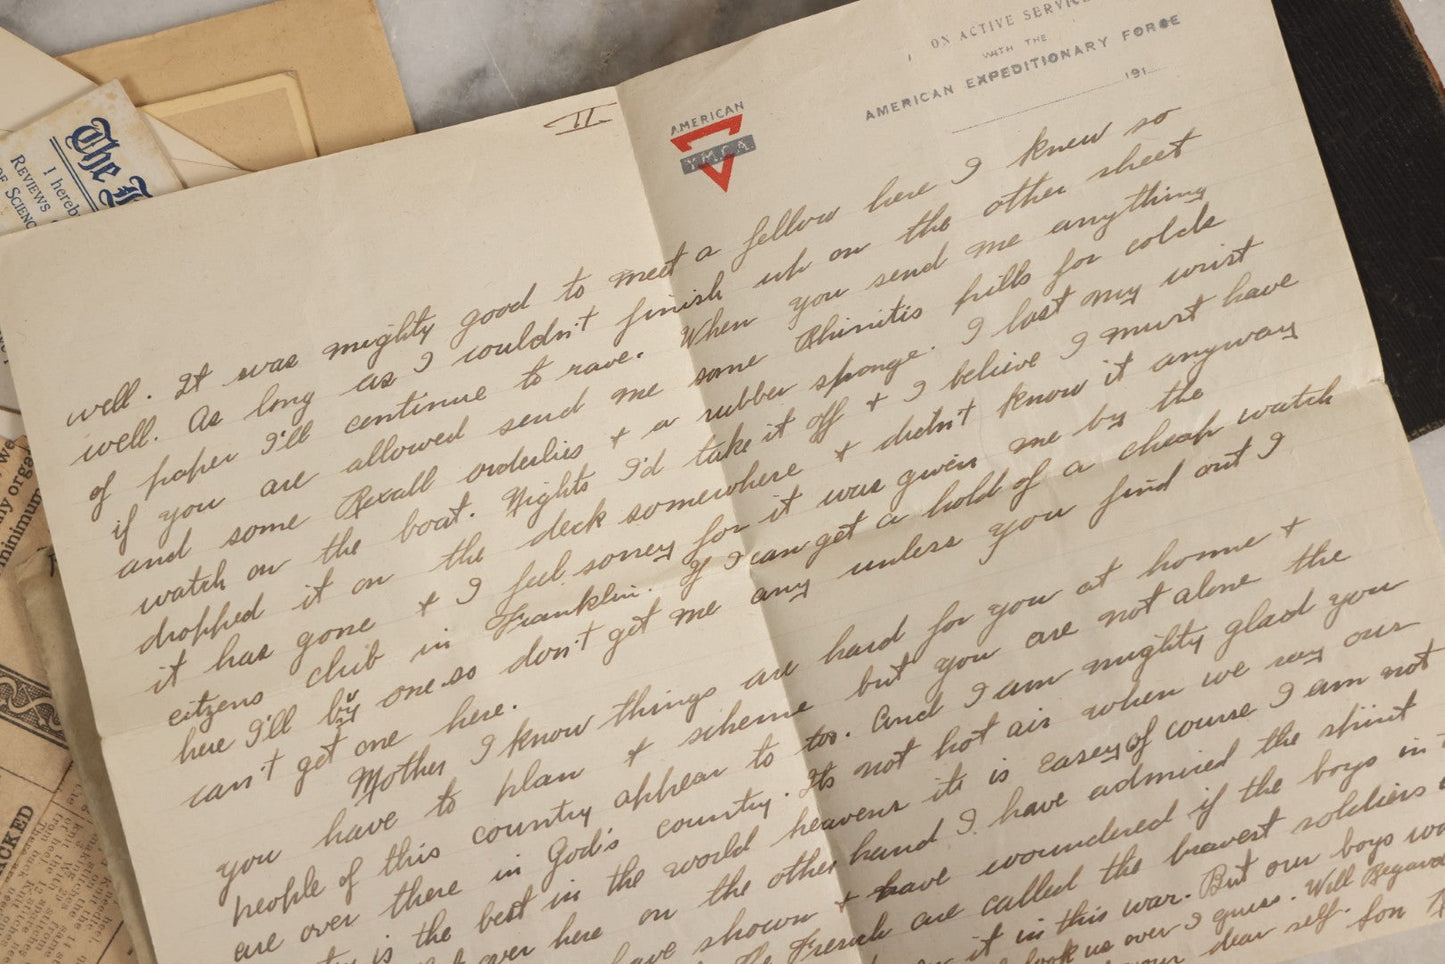 II
AMERICAN
Y.M.C.A
ON ACTIVE SERVICE
WITH THE
AMERICAN EXPEDITIONARY FORCE
191
well. It was mighty good to meet a fellow here I knew so
well. As long as I couldn't finish up on the other sheet
of paper I'll continue to rave. When you send me anything
if you are allowed send me some Rhinitis pills for colds
and some Rexall orderlies + a rubber sponge. I lost my wrist
watch on the boat. Nights I'd take it off + I believe I must have
dropped it on the deck somewhere + didn't know it anyway
it has gone + I feel sorrey for it was given me by the
citzens club in Franklin. If I can get a hold of a cheap watch
here I'll buy one so don't get me any unless you find out I
can't get one here.
Mother I know things are hard for you at home +
you have to plan + scheme but you are not alone the
people of this country appear to too. And I am mighty glad you
are over there in God's country. Its not hot air when we say our
is the best in the world heavens its is easey of course I am not
over here on the other hand I have admired the spirit
have shown + have wondered if the boys in
The French are called the bravest soldiers
it in this war. But our boys
look us over I guess. Will
your dear self. Son
The
I hereb
REVIEWS
OF SCIENC
any or
minimum
CKED